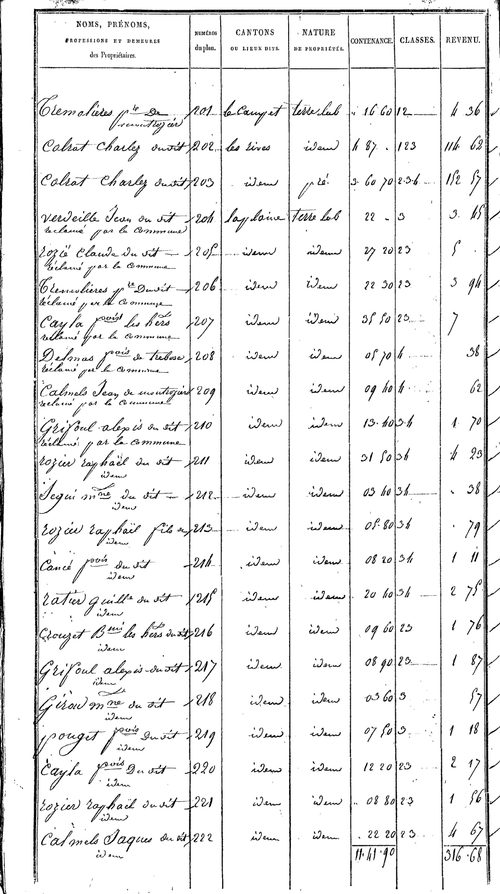 NOMS, PRÉNOMS,
PROFESSIONS ET DEMEURES
des Propriétaires.
NUMÉROS
du plan.
CANTONS
OU LIEUX DITS.
NATURE
DE PROPRIÉTÉS.
CONTENANCE.
CLASSES.
REVENU.
Tremolières pre De 201 le Campet terre lab 16 60 12 4 36
montrozier
Calrat Charles du dit 202 les rives idem 4 87 . 123 114 62
Calrat Charles du dit 203 idem pré 3 60 70 234 152 57
verdeille Jean du dit 204 la plaine terre lab 22 - 3 3 45
réclamé par la commune
rozié Claude du dit 205 idem idem 27 20 23 5 .
réclamé par la commune
Tremolières pre Du dit 206 idem idem 22 30 23 3 94
réclamé par la commune
Cayla pois les hers 207 idem idem 35 50 23 7
réclamé par la commune
Delmas pois de trebosc 208 idem idem 05 70 4 38
réclamé par la commune
Calmels Jean de montrozier 209 idem idem 09 40 4 62
réclamé par la commune
Grifoul alexis du dit 210 idem idem 13 40 34 1 70
réclamé par la commune
rozier raphaël du dit 211 idem idem 31 50 34 4 23
idem
Segui mne du dit 212 idem idem 03 40 34 . 38
idem
rozier raphaël fils de 213 idem idem 05 80 34 . 79
idem
Cancé pois du dit 214 idem idem 08 20 34 1 11
idem
ratier guille du dit 215 idem idem 20 40 34 2 75
idem
Crouzet Bmi les hers du dit 216 idem idem 09 60 23 1 76
idem
Grifoul alexis du dit 217 idem idem 08 90 23 1 87
idem
Girou mne du dit 218 idem idem 03 60 3 57
idem
pouget pois Du dit 219 idem idem 07 50 3 1 18
idem
Cayla pois Du dit 220 idem idem 12 20 23 2 17
idem
rozier raphaël du dit 221 idem idem 08 80 23 1 56
idem
Calmels Jaques du dit 222 idem idem 22 20 23 4 67
idem
11.41.90 316.68